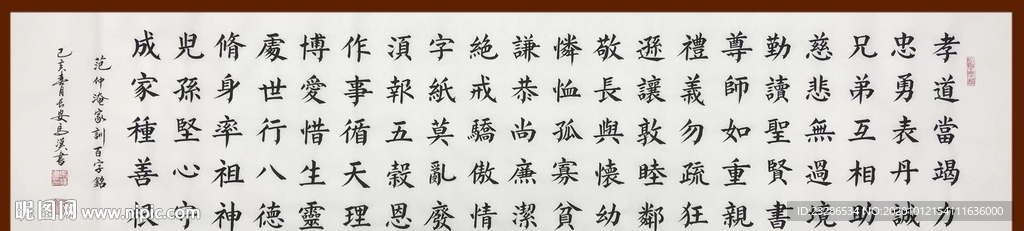 孝道當竭力
忠勇表丹誠
兄弟互相助
慈悲無過境
勤讀聖賢書
尊師如重親
禮義勿疏狂
遜讓敦睦鄰
敬長與懷幼
憐恤孤寡貧
謙恭尚廉潔
絕戒驕傲情
字紙莫亂廢
須報五穀恩
作事循天理
博愛惜生靈
處世行八德
脩身率祖神
兒孫堅心守
成家種善根
范仲淹家訓百字銘
己亥春月
昵图网 www.nipic.com
ID:23286534 NO:20201012154111636000